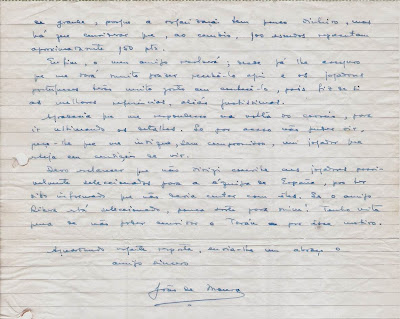 de grande, porque a organização tem pouco dinheiro, mas
há que considerar que, ao cambio, 500 escudos representam
aproximadamente 950 pts.
Enfim, o meu amigo resolverá; desde já lhe asseguro
que me dará muito prazer recebê-lo aqui e os jogadores
portugueses terão muito gosto em conhecê-lo, pois fiz de si
as melhores referências, aliás justíssimas.
Agradecia que me respondesse na volta do correio, para
ir ultimando os detalhes. Se por acaso não puder vir,
peço-lhe que me indique, sem compromisso, um jogador que
esteja em condições de vir.
Devo esclarecer que não dirigi convite aos jogadores possi-
velmente seleccionados para a équipa de España, por ter
sido informado que não devia contar com eles. Se o amigo
está seleccionado, pouca sorte para mim! Tenho muita
pena de não poder convidar o Torán por esse motivo.
Aguardando resposta, envia-lhe um abraço o
amigo sincero
João de Moura